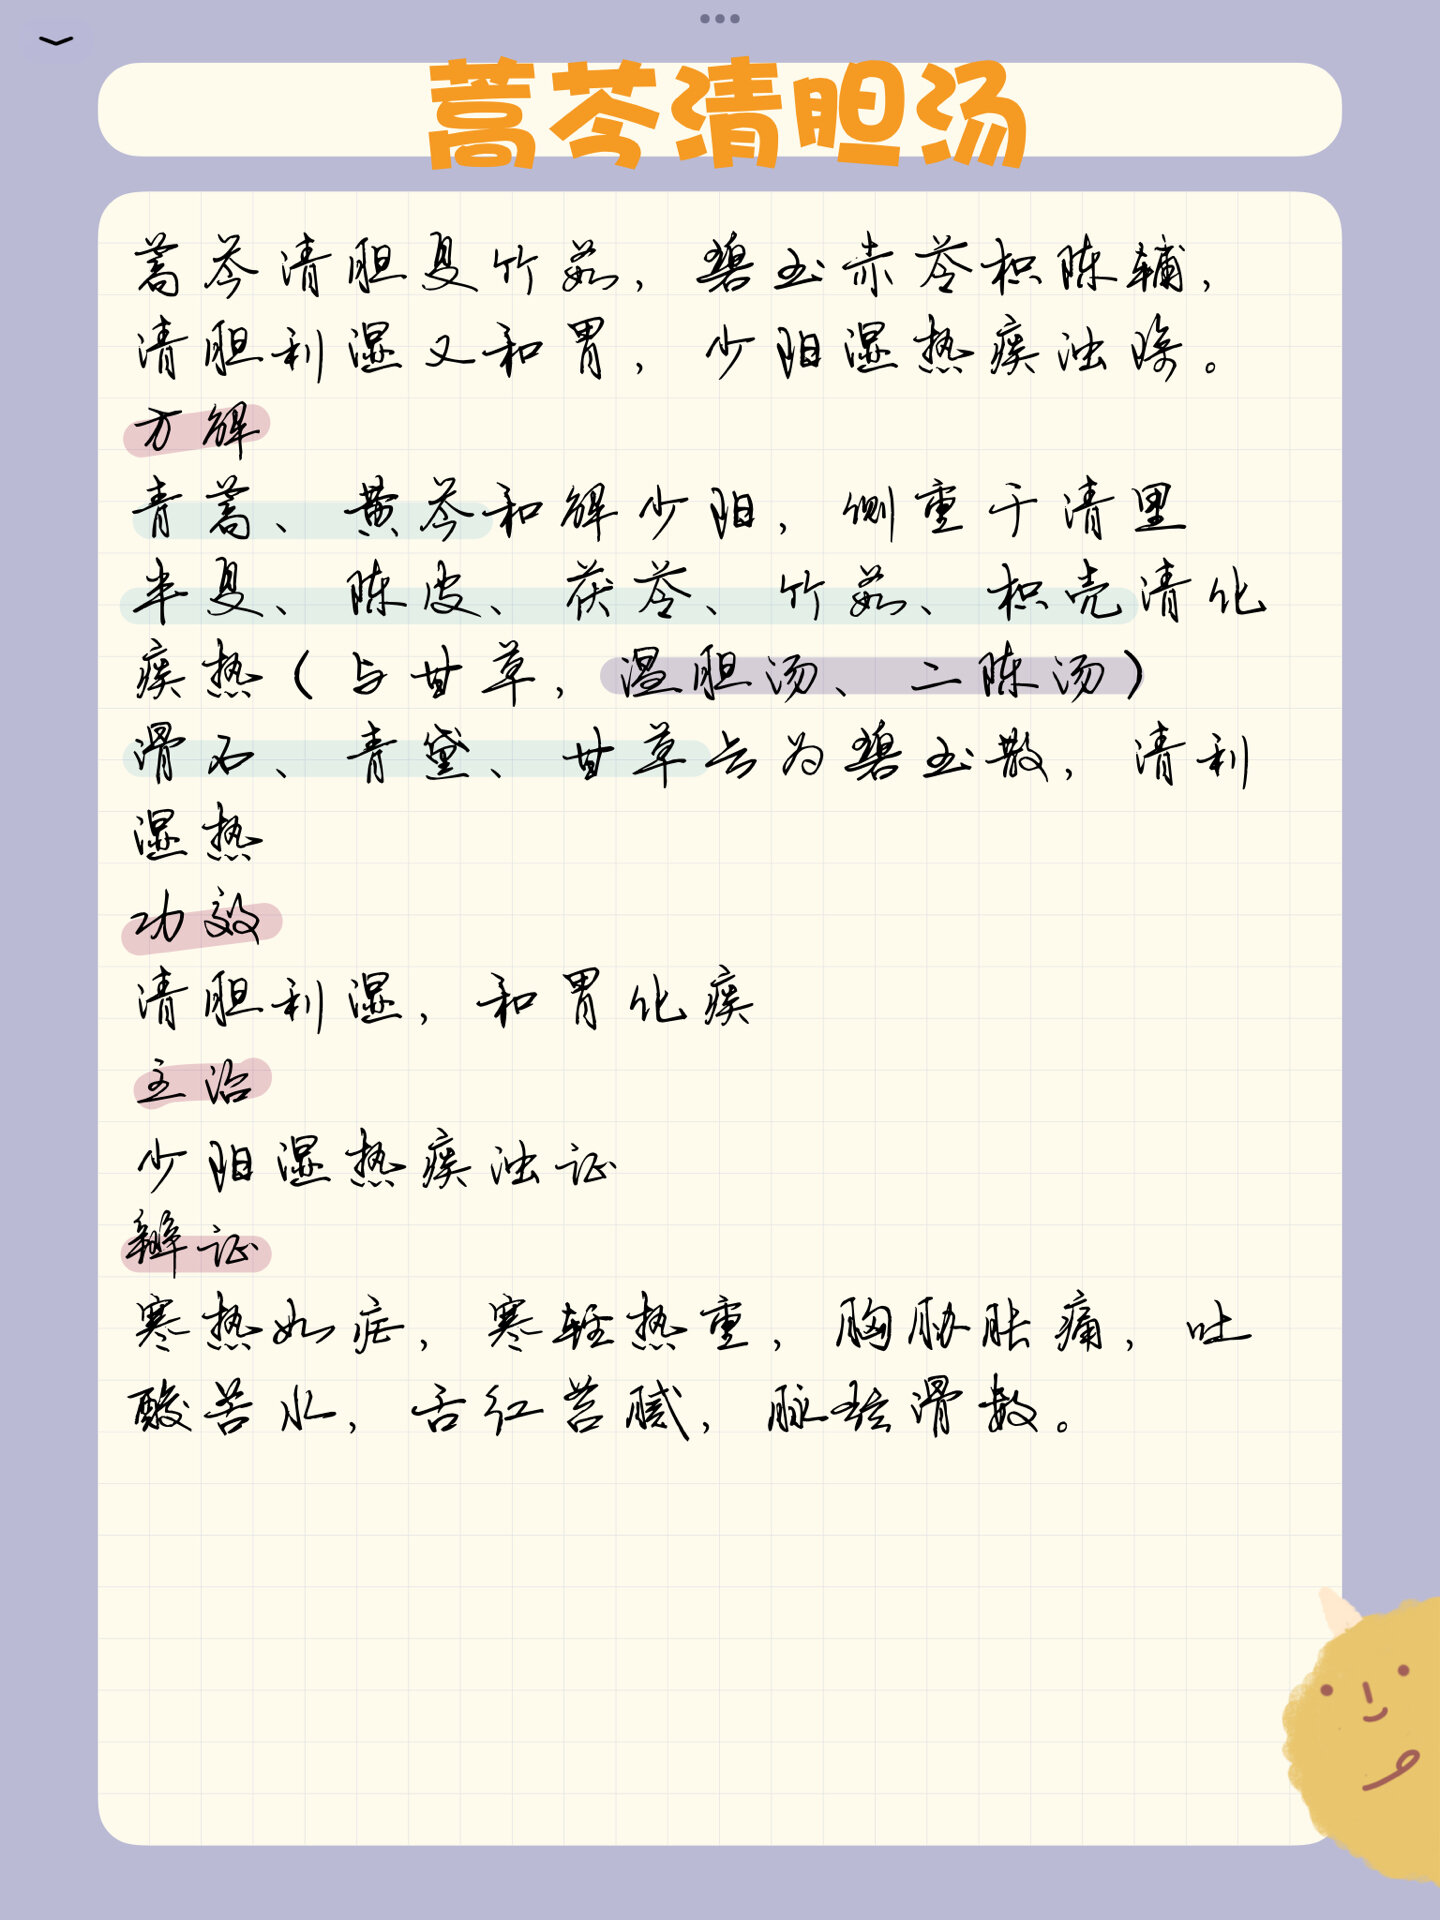 蒿芩清胆汤
蒿芩清胆夏竹茹，碧玉赤苓枳陈辅，
清胆利湿又和胃，少阳湿热痰浊除。
方解
青蒿、黄芩和解少阳，侧重于清里
半夏、陈皮、茯苓、竹茹、枳壳清化
痰热（与甘草，温胆汤、二陈汤）
滑石、青黛、甘草云为碧玉散，清利
湿热
功效
清胆利湿，和胃化痰
主治
少阳湿热痰浊证
辨证
寒热如疟，寒轻热重，胸胁胀痛，吐
酸苦水，舌红苔腻，脉弦滑数。